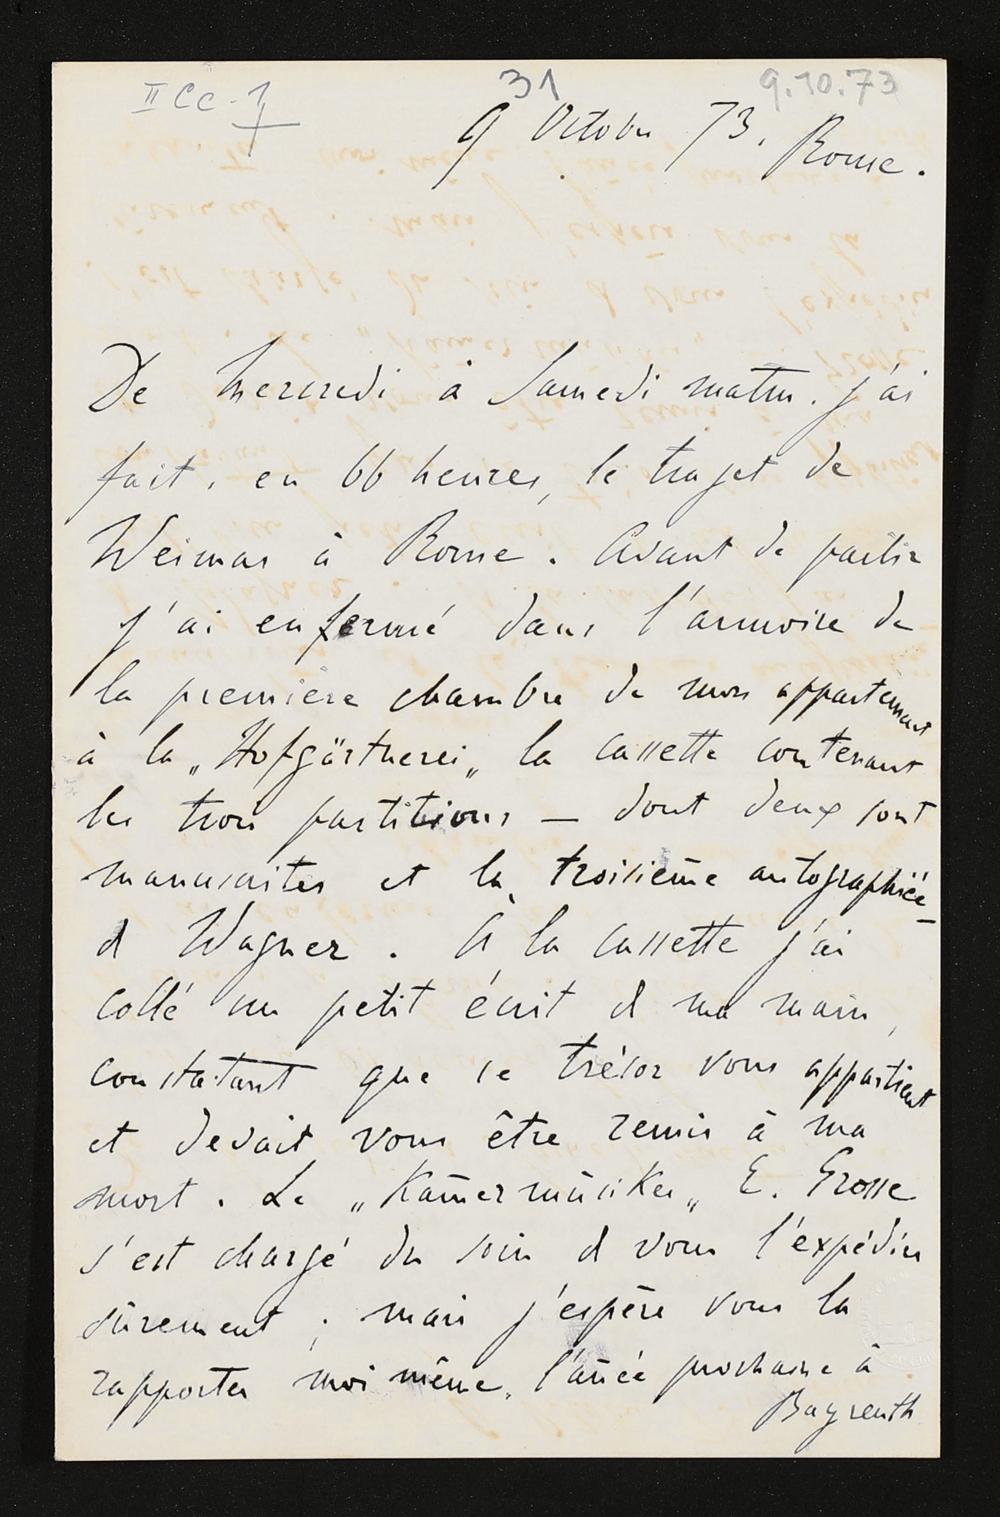 II Cc-1
31
9.10.73
9 Octobre 73. Rome.
De Mercredi à Samedi matin. j'ai
fait, en 66 heures, le trajet de
Weimar à Rome. Avant de partir
j'ai enfermé dans l'armoire de
la première chambre de mon appartement
à la „Hofgärtnerei„ la cassette contenant
les trois partitions — dont deux sont
manuscrites et la troisième autographiée —
de Wagner. À la cassette j'ai
collé un petit écrit de ma main,
constatant que ce trésor vous appartient
et devait vous être remis à ma
mort. Le „Kam̄ermusiker„ E. Grosse
s'est chargé du soin de vous l'expédier
sûrement; mais j'espère vous la
rapporter moi même, l'an̄ée prochaine à
Bayreuth